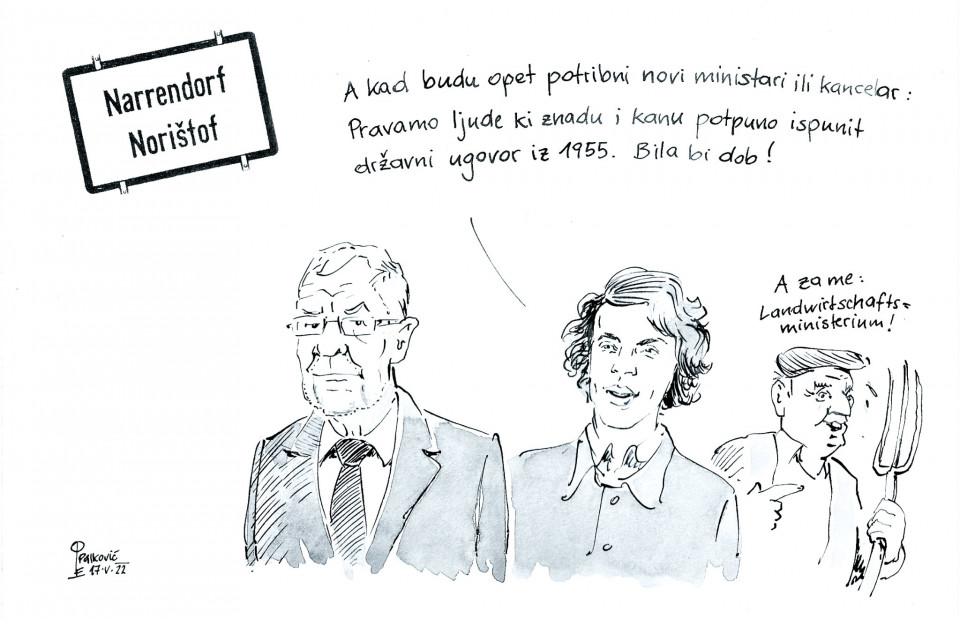 Narrendorf
Norištof
A kad budu opet potribni novi ministari ili kancelar:
Pravamo ljude ki znadu i kanu potpuno ispunit
državni ugovor iz 1955. Bila bi dob!
A za me:
Landwirtschafts=
ministerium!
Palković
17·V·22